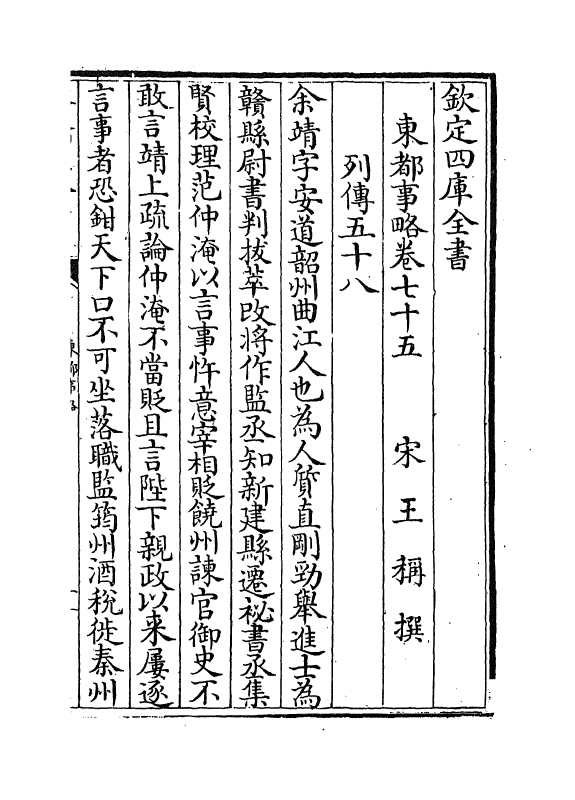 欽定四庫全書
東都事略卷七十五　宋　王　稱　撰
列傳五十八
余靖字安道韶州曲江人也為人質直剛勁舉進士為
贛縣尉書判拔萃改將作監丞知新建縣遷祕書丞集
賢校理范仲淹以言事忤意宰相貶饒州諫官御史不
敢言靖上疏論仲淹不當貶且言陛下親政以来屢逐
言事者恐鉗天下口不可坐落職監筠州酒稅徙秦州
東都事略